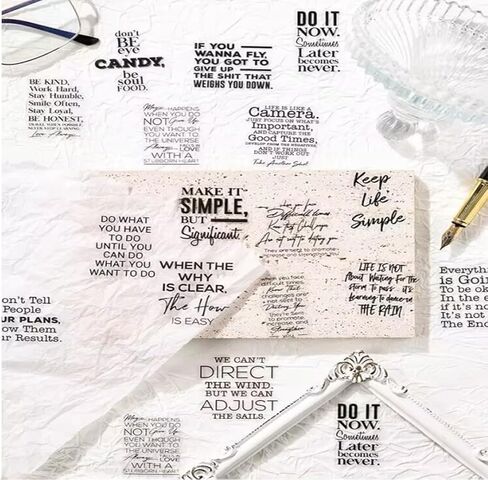 don't
BE
eye
CANDY,
be
soul
FOOD.
IF YOU
WANNA FLY,
YOU GOT TO
GIVE UP
THE SHIT THAT
WEIGHS YOU DOWN.
DO IT
NOW.
Sometimes
Later
becomes
never.
BE KIND,
Work Hard,
Stay Humble,
Smile Often,
Stay Loyal,
BE HONEST,
Magic HAPPENS
WHEN YOU DO
NOT Give Up
EVEN THOUGH
YOU WANT TO.
THE UNIVERSE
Always
LOVE
WITH A
STUBBORN HEART
LIFE IS LIKE A
Camera.
JUST FOCUS ON WHAT'S
Important,
AND CAPTURE THE
Good Times,
DEVELOP FROM THE NEGATIVES
AND IF THINGS
DON'T WORK OUT
JUST
Take Another Shot
MAKE IT
SIMPLE,
BUT
Significant
Keep
Life
Simple
DO WHAT
YOU HAVE
TO DO
UNTIL YOU
CAN DO
WHAT YOU
WANT TO DO
WHEN THE
WHY
IS CLEAR,
The How
IS EASY
They're sent to
promote
increase and
Strengthen
LIFE IS NOT
About Waiting For the
storm to pass it's
learning to dance in
THE RAIN
Everything
is Goin
To be ok
In the e
if it's no
It's not
The End
on't Tell
People
UR PLANS,
ow Them
ur Results.
WE CAN'T
DIRECT
THE WIND.
BUT WE CAN
ADJUST
THE SAILS.
Magic HAPPENS
WHEN YOU DO
NOT Give Up
EVEN THOUGH
YOU WANT TO.
THE UNIVERSE
Always
LOVE
WITH A
STUBBORN HEART
DO IT
NOW.
Sometimes
Later
becomes
never.